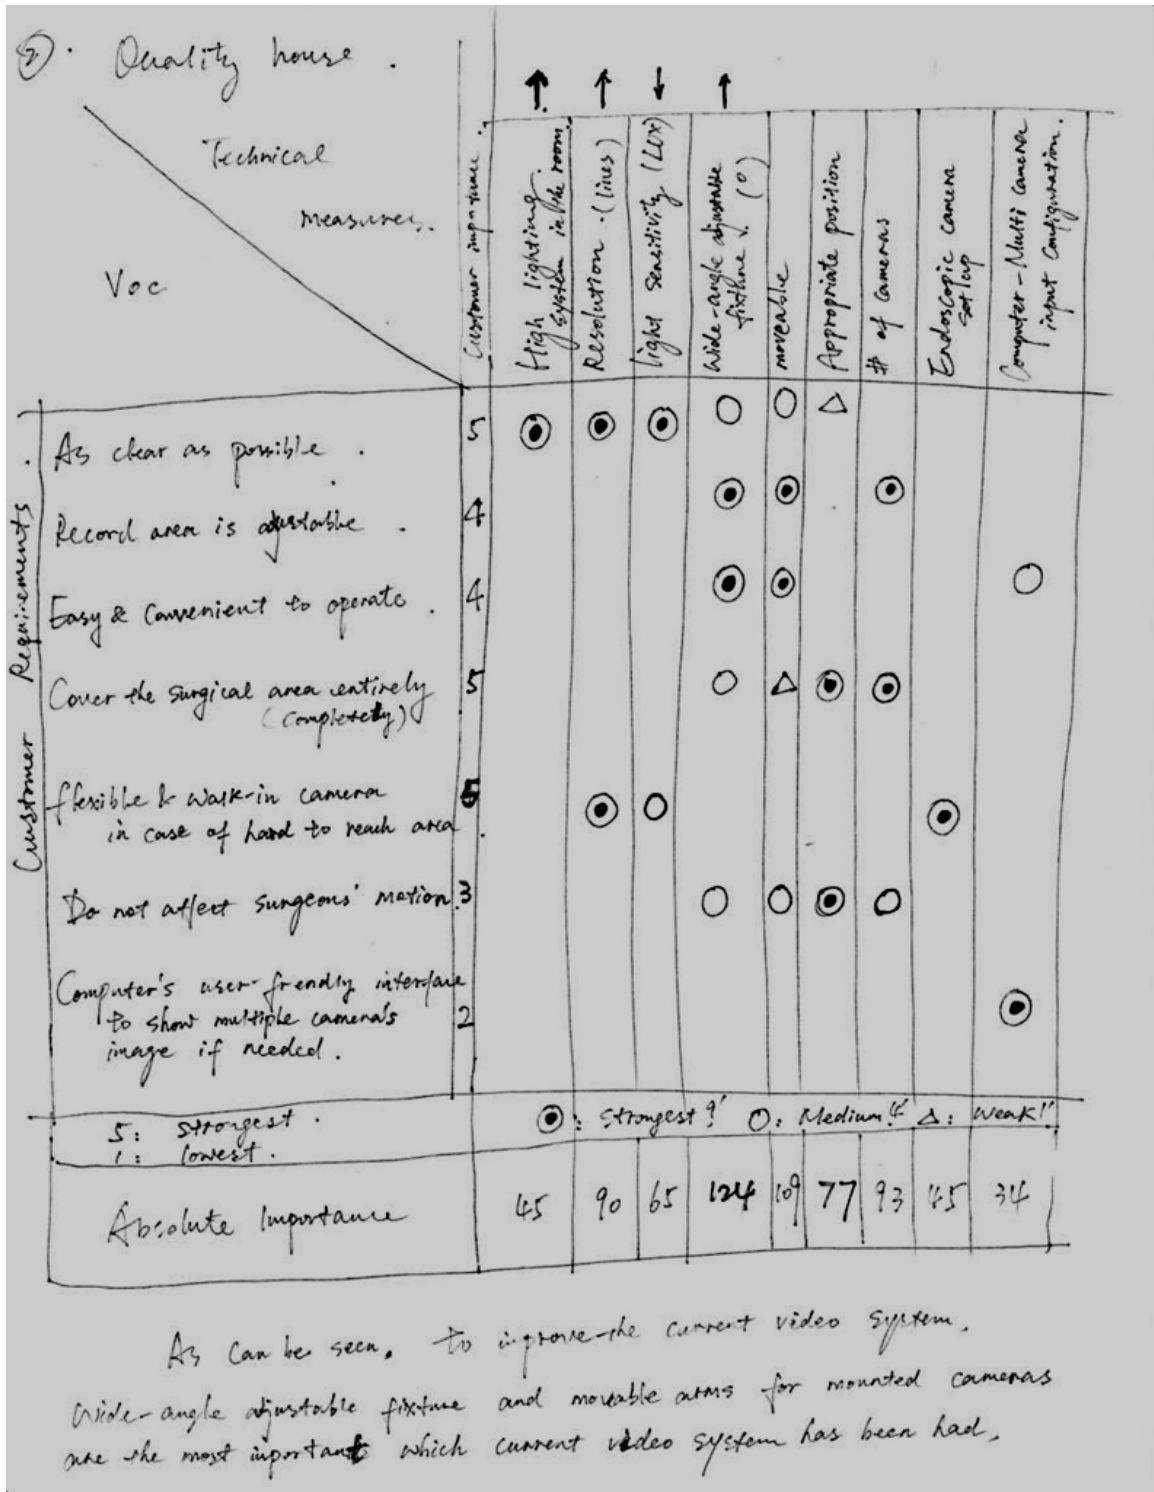 ②. Quality house.
Technical
measures.
VOC
Customer importance.
High lighting system in the room.
Resolution (lines)
light sensitivity (LUX)
Wide-angle adjustable fixture (°)
moveable
Appropriate position
# of cameras
Endoscopic camera set up
Computer-Multi Camera input configuration.
Customer Requirements
As clear as possible. 5 ◉ ◉ ◉ ○ ○ △
Record area is adjustable. 4 ◉ ◉ ◉
Easy & Convenient to operate. 4 ◉ ◉ ○
Cover the surgical area entirely 5 ○ △ ◉ ◉
(completely)
flexible & walk-in camera 5 ◉ ○ ◉
in case of hard to reach area.
Do not affect surgeons' motion. 3 ○ ○ ◉ ○
Computer's user-friendly interface
to show multiple camera's 2 ◉
image if needed.
5: strongest. ◉: Strongest 9' ○: Medium '4' △: weak '1'
1: lowest.
Absolute Importance 45 90 65 124 109 77 93 45 34
As can be seen. To improve the current video system,
wide-angle adjustable fixture and moveable arms for mounted cameras
are the most important which current video system has been had.